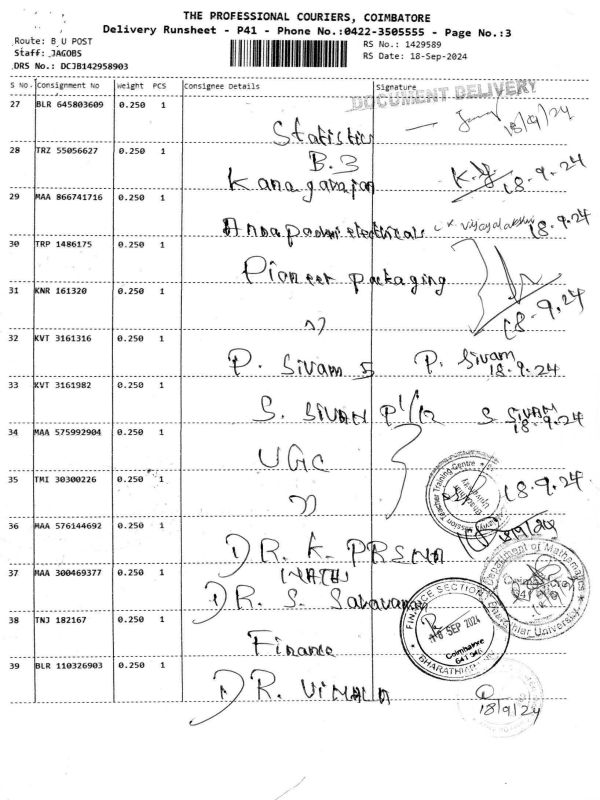 THE PROFESSIONAL COURIERS, COIMBATORE
Delivery Runsheet - P41 - Phone No.:0422-3505555 - Page No.:3
Route: B U POST
Staff: JAGOBS
DRS No.: DCJB142958903
RS No.: 1429589
RS Date: 18-Sep-2024
S No. Consignment No Weight PCS Consignee Details Signature
DOCUMENT DELIVERY
27 BLR 645803609 0.250 1 Statistics 18/9/24
28 TRZ 55056627 0.250 1 B.3
Kanagarajan 18.9.24
29 MAA 866741716 0.250 1 electricals 18.9.24
30 TRP 1486175 0.250 1 Pioneer packaging
31 KNR 161320 0.250 1 18.9.24
32 KVT 3161316 0.250 1 P. Sivam P. Sivam
18.9.24
33 KVT 3161982 0.250 1 S. SIVAN S SIVAN
18.9.24
34 MAA 575992904 0.250 1 UGC
35 TMI 30300226 0.250 1 18.9.24
Teacher Training Centre
36 MAA 576144692 0.250 1 DR. K. PRSNA 18/9/24
NATH
37 MAA 300469377 0.250 1 DR. S. Saravanan
Department of Mathematics
Bharathiar University
38 TNJ 182167 0.250 1 Finance
FINANCE SECTION
18 SEP 2024
Coimbatore
641 046
39 BLR 110326903 0.250 1 DR. VIMALA
18/9/24